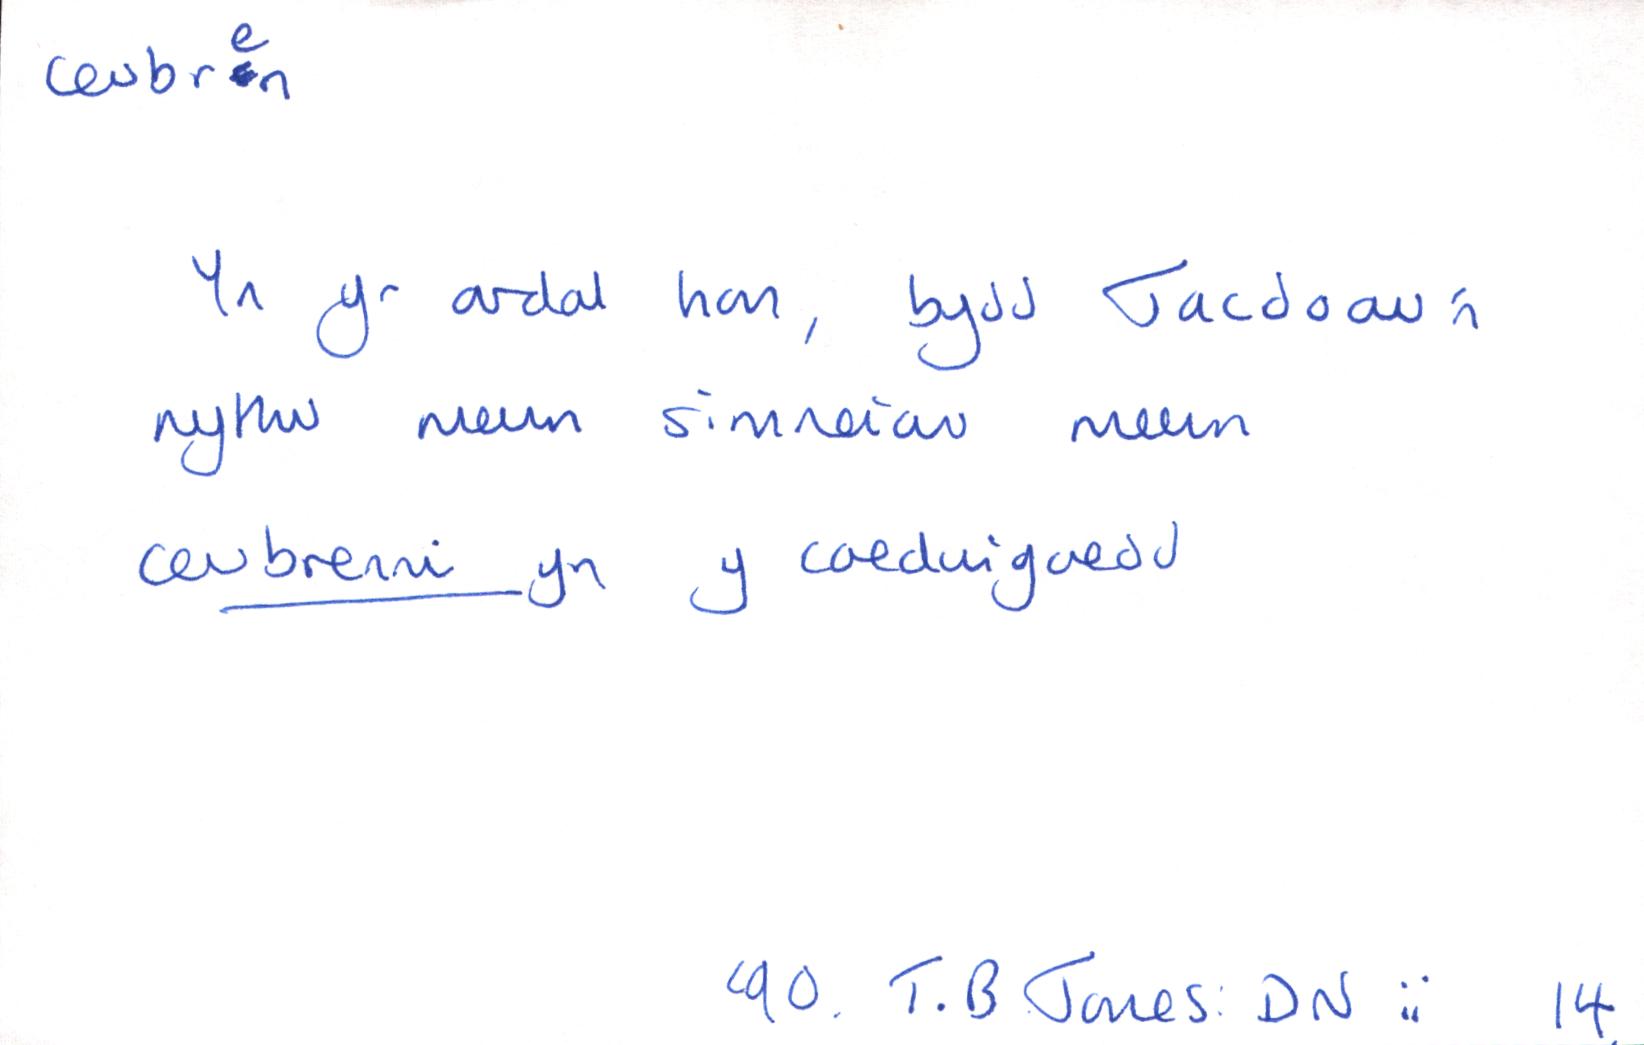 ceubren
Yn yr ardal hon, bydd Jacdoau'n
nythu mewn simneiau mewn
ceubrenni yn y coedwigoedd
1990. T.B Jones: DN ii 14